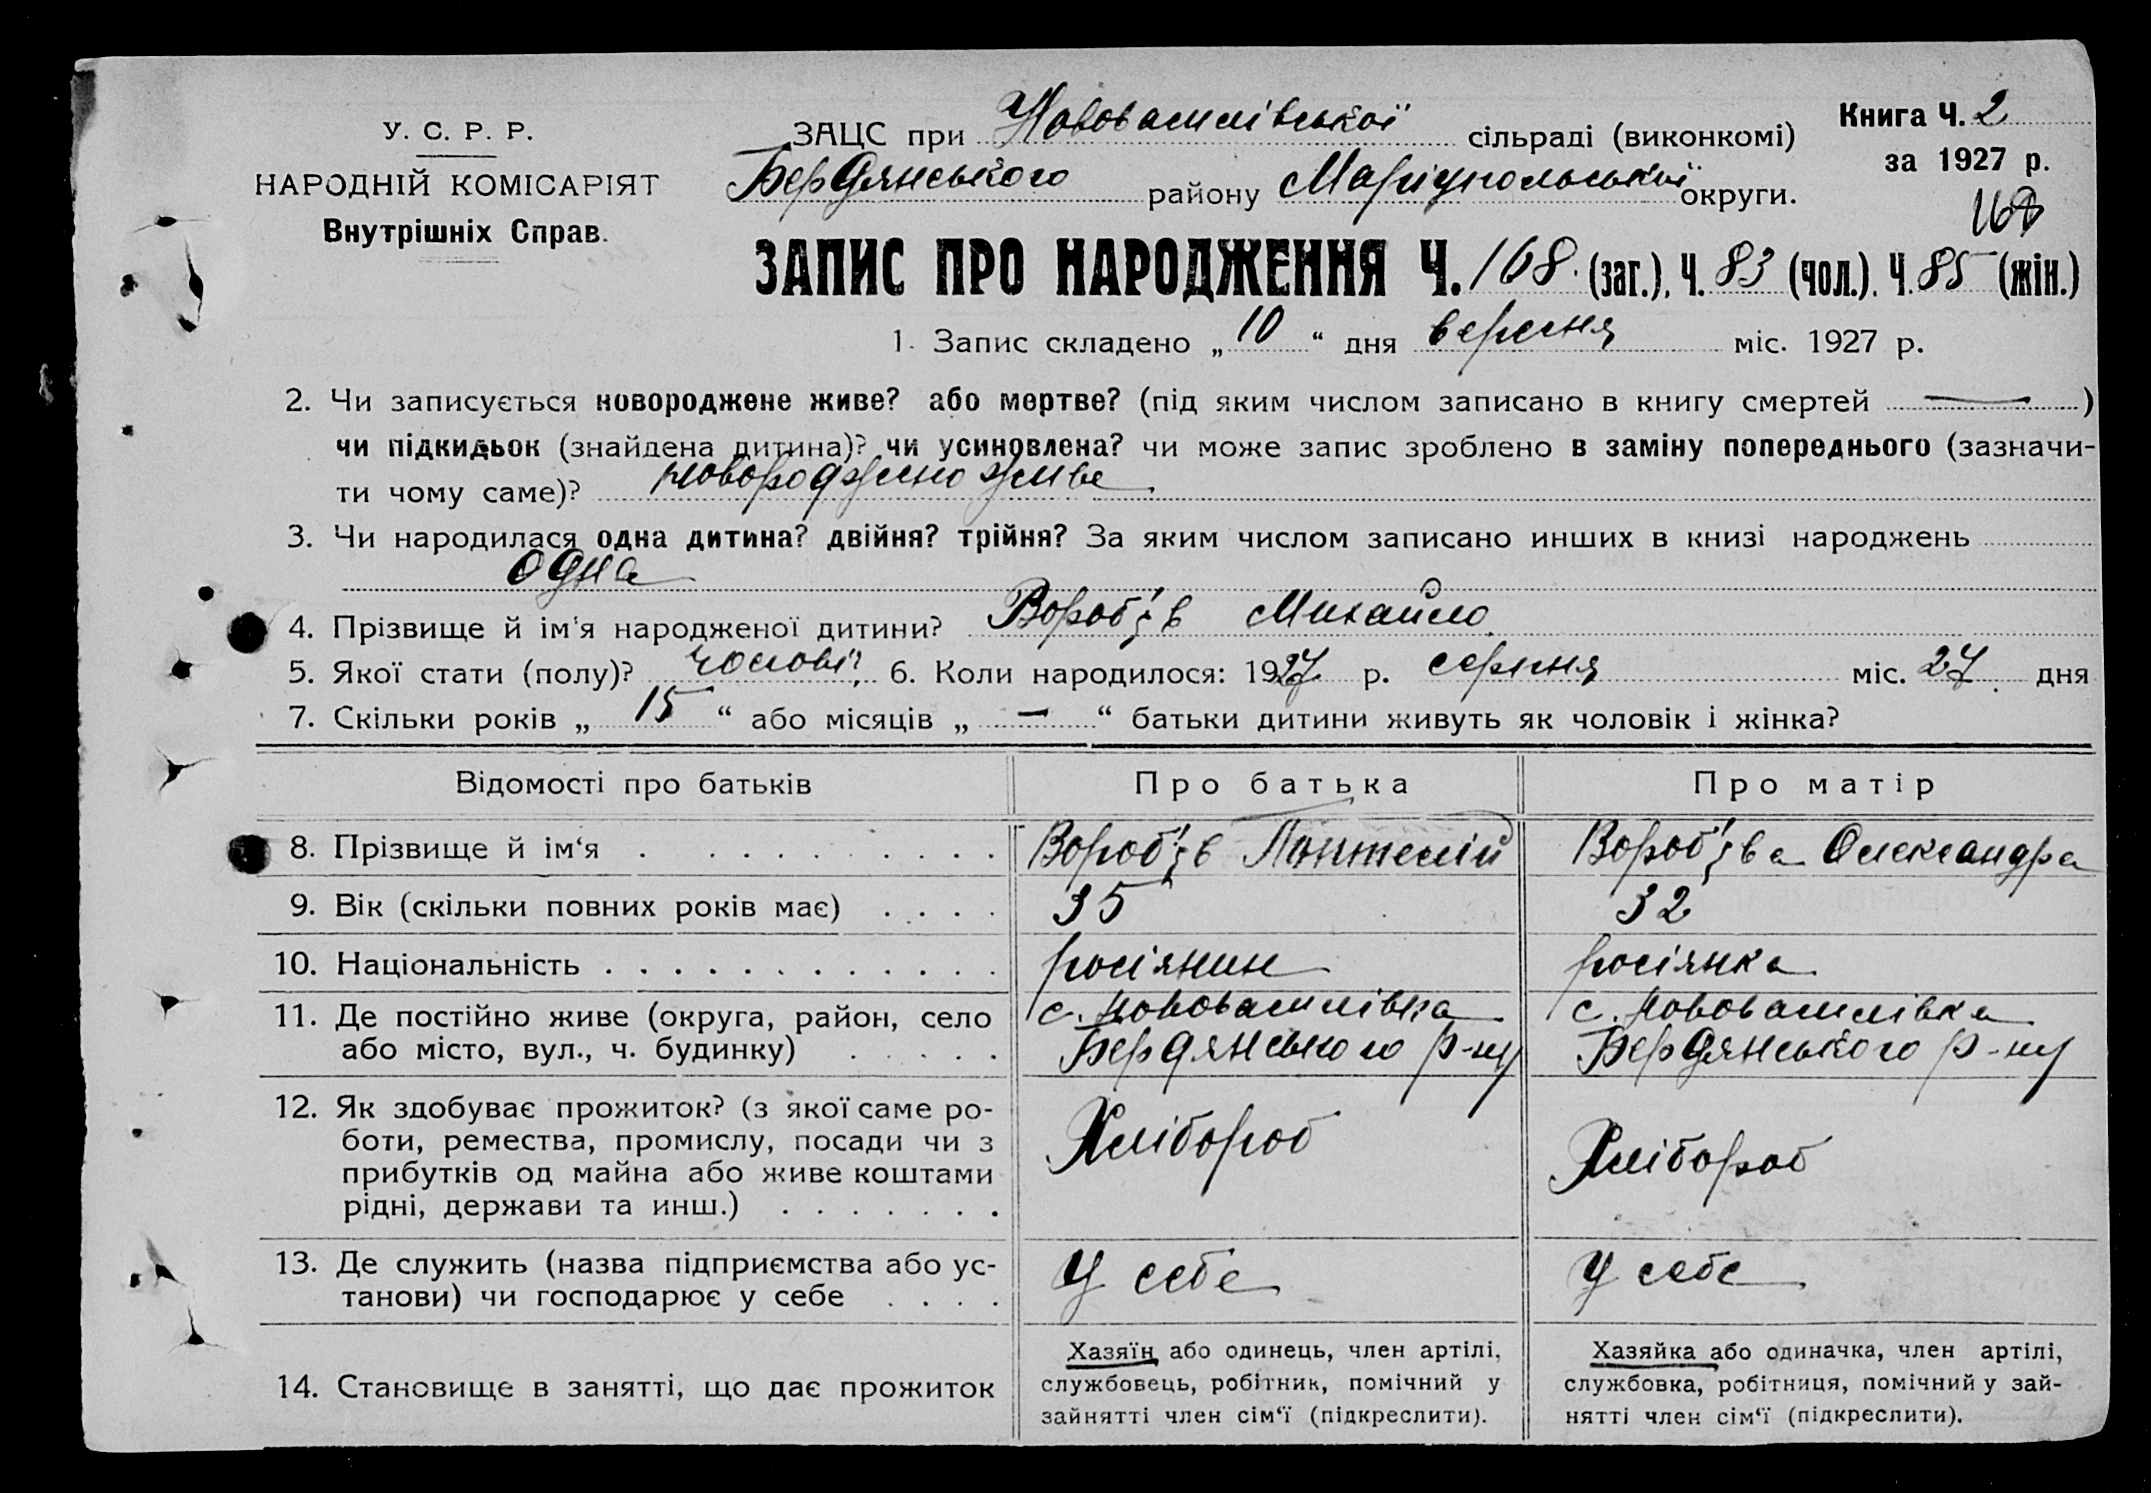 У. С. Р. Р.
НАРОДНІЙ КОМІСАРІЯТ
Внутрішніх Справ.
ЗАЦС при Нововасилівської сільраді (виконкомі)
Бердянського району Маріупольської округи.
Книга Ч. 2
за 1927 р.
168
ЗАПИС ПРО НАРОДЖЕННЯ Ч. 168. (заг.), Ч. 83 (чол.). Ч. 85 (жін.)
1. Запис складено „ 10 “ дня вересня міс. 1927 р.
2. Чи записується новороджене живе? або мертве? (під яким числом записано в книгу смертей — )
чи підкидьок (знайдена дитина)? чи усиновлена? чи може запис зроблено в заміну попереднього (зазначи-
ти чому саме)? новороджено живе
3. Чи народилася одна дитина? двійня? трійня? За яким числом записано инших в книзі народжень
одна
4. Прізвище й ім'я народженої дитини? Вороб'їв Михайло
5. Якої стати (полу)? чолові 6. Коли народилося: 1927 р. серпня міс. 27 дня
7. Скільки років „ 15 “ або місяців „ — “ батьки дитини живуть як чоловік і жінка?
Відомості про батьків Про батька Про матір
8. Прізвище й ім‘я Вороб'їв Пантелій Вороб'їва Олександра
9. Вік (скільки повних років має) 35 32
10. Національність росіянин росіянка
11. Де постійно живе (округа, район, село с. Нововасилівка с. Нововасилівка
або місто, вул., ч. будинку) Бердянського р-ну Бердянського р-ну
12. Як здобуває прожиток? (з якої саме ро-
боти, ремества, промислу, посади чи з Хлібороб Хлібороб
прибутків од майна або живе коштами
рідні, держави та инш.)
13. Де служить (назва підприємства або ус- У себе У себе
танови) чи господарює у себе
14. Становище в занятті, що дає прожиток
Хазяїн або одинець, член артілі,
службовець, робітник, помічний у
зайнятті член сім‘ї (підкреслити).
Хазяйка або одиначка, член артілі,
службовка, робітниця, помічний у зай-
нятті член сім‘ї (підкреслити).